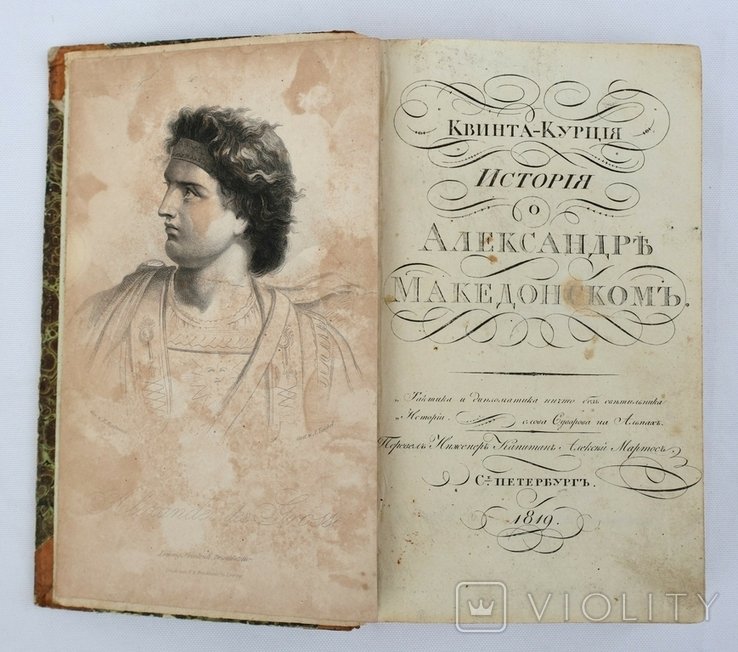 Квинта-Курція
Исторія
о
Александрѣ
Македонскомъ.
„ Тактика и дипломатика ничто безъ свѣтильника
„ Исторіи. слова Суворова на Альпахъ.
Перевелъ Инженеръ Капитанъ Алексѣй Мартосъ
Ст. Петербургъ.
1819.
VIOLITY